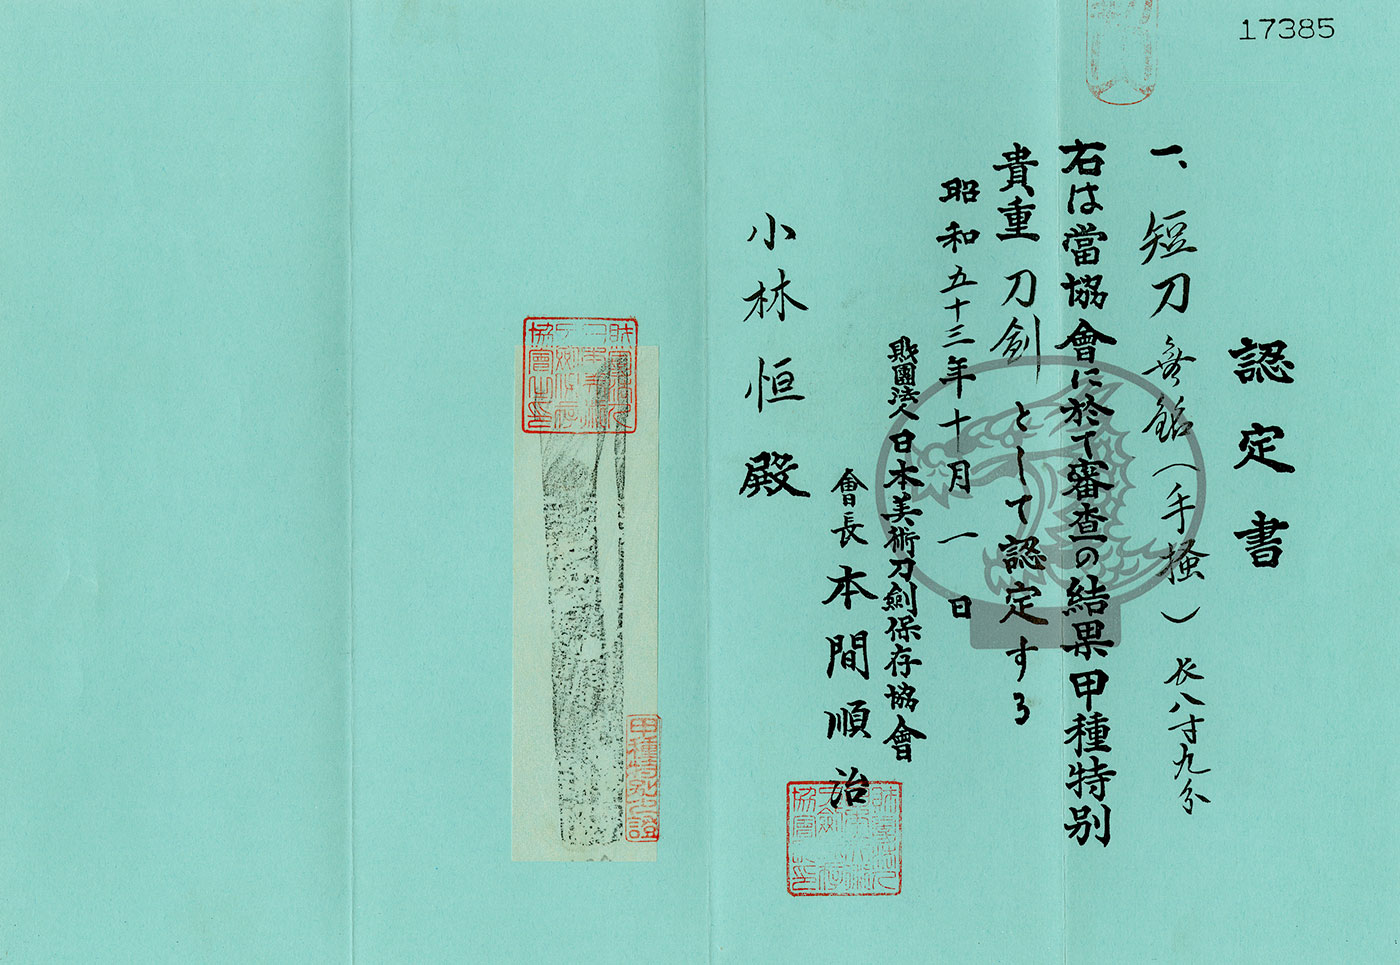 17385
認定書
一、短刀 無銘(手掻) 長八寸九分
右は當協會に於て審査の結果甲種特別
貴重刀剣として認定する
昭和五十三年十月一日
財團法人日本美術刀劍保存協會
會長 本間順治
小林恒殿
甲種特別之證